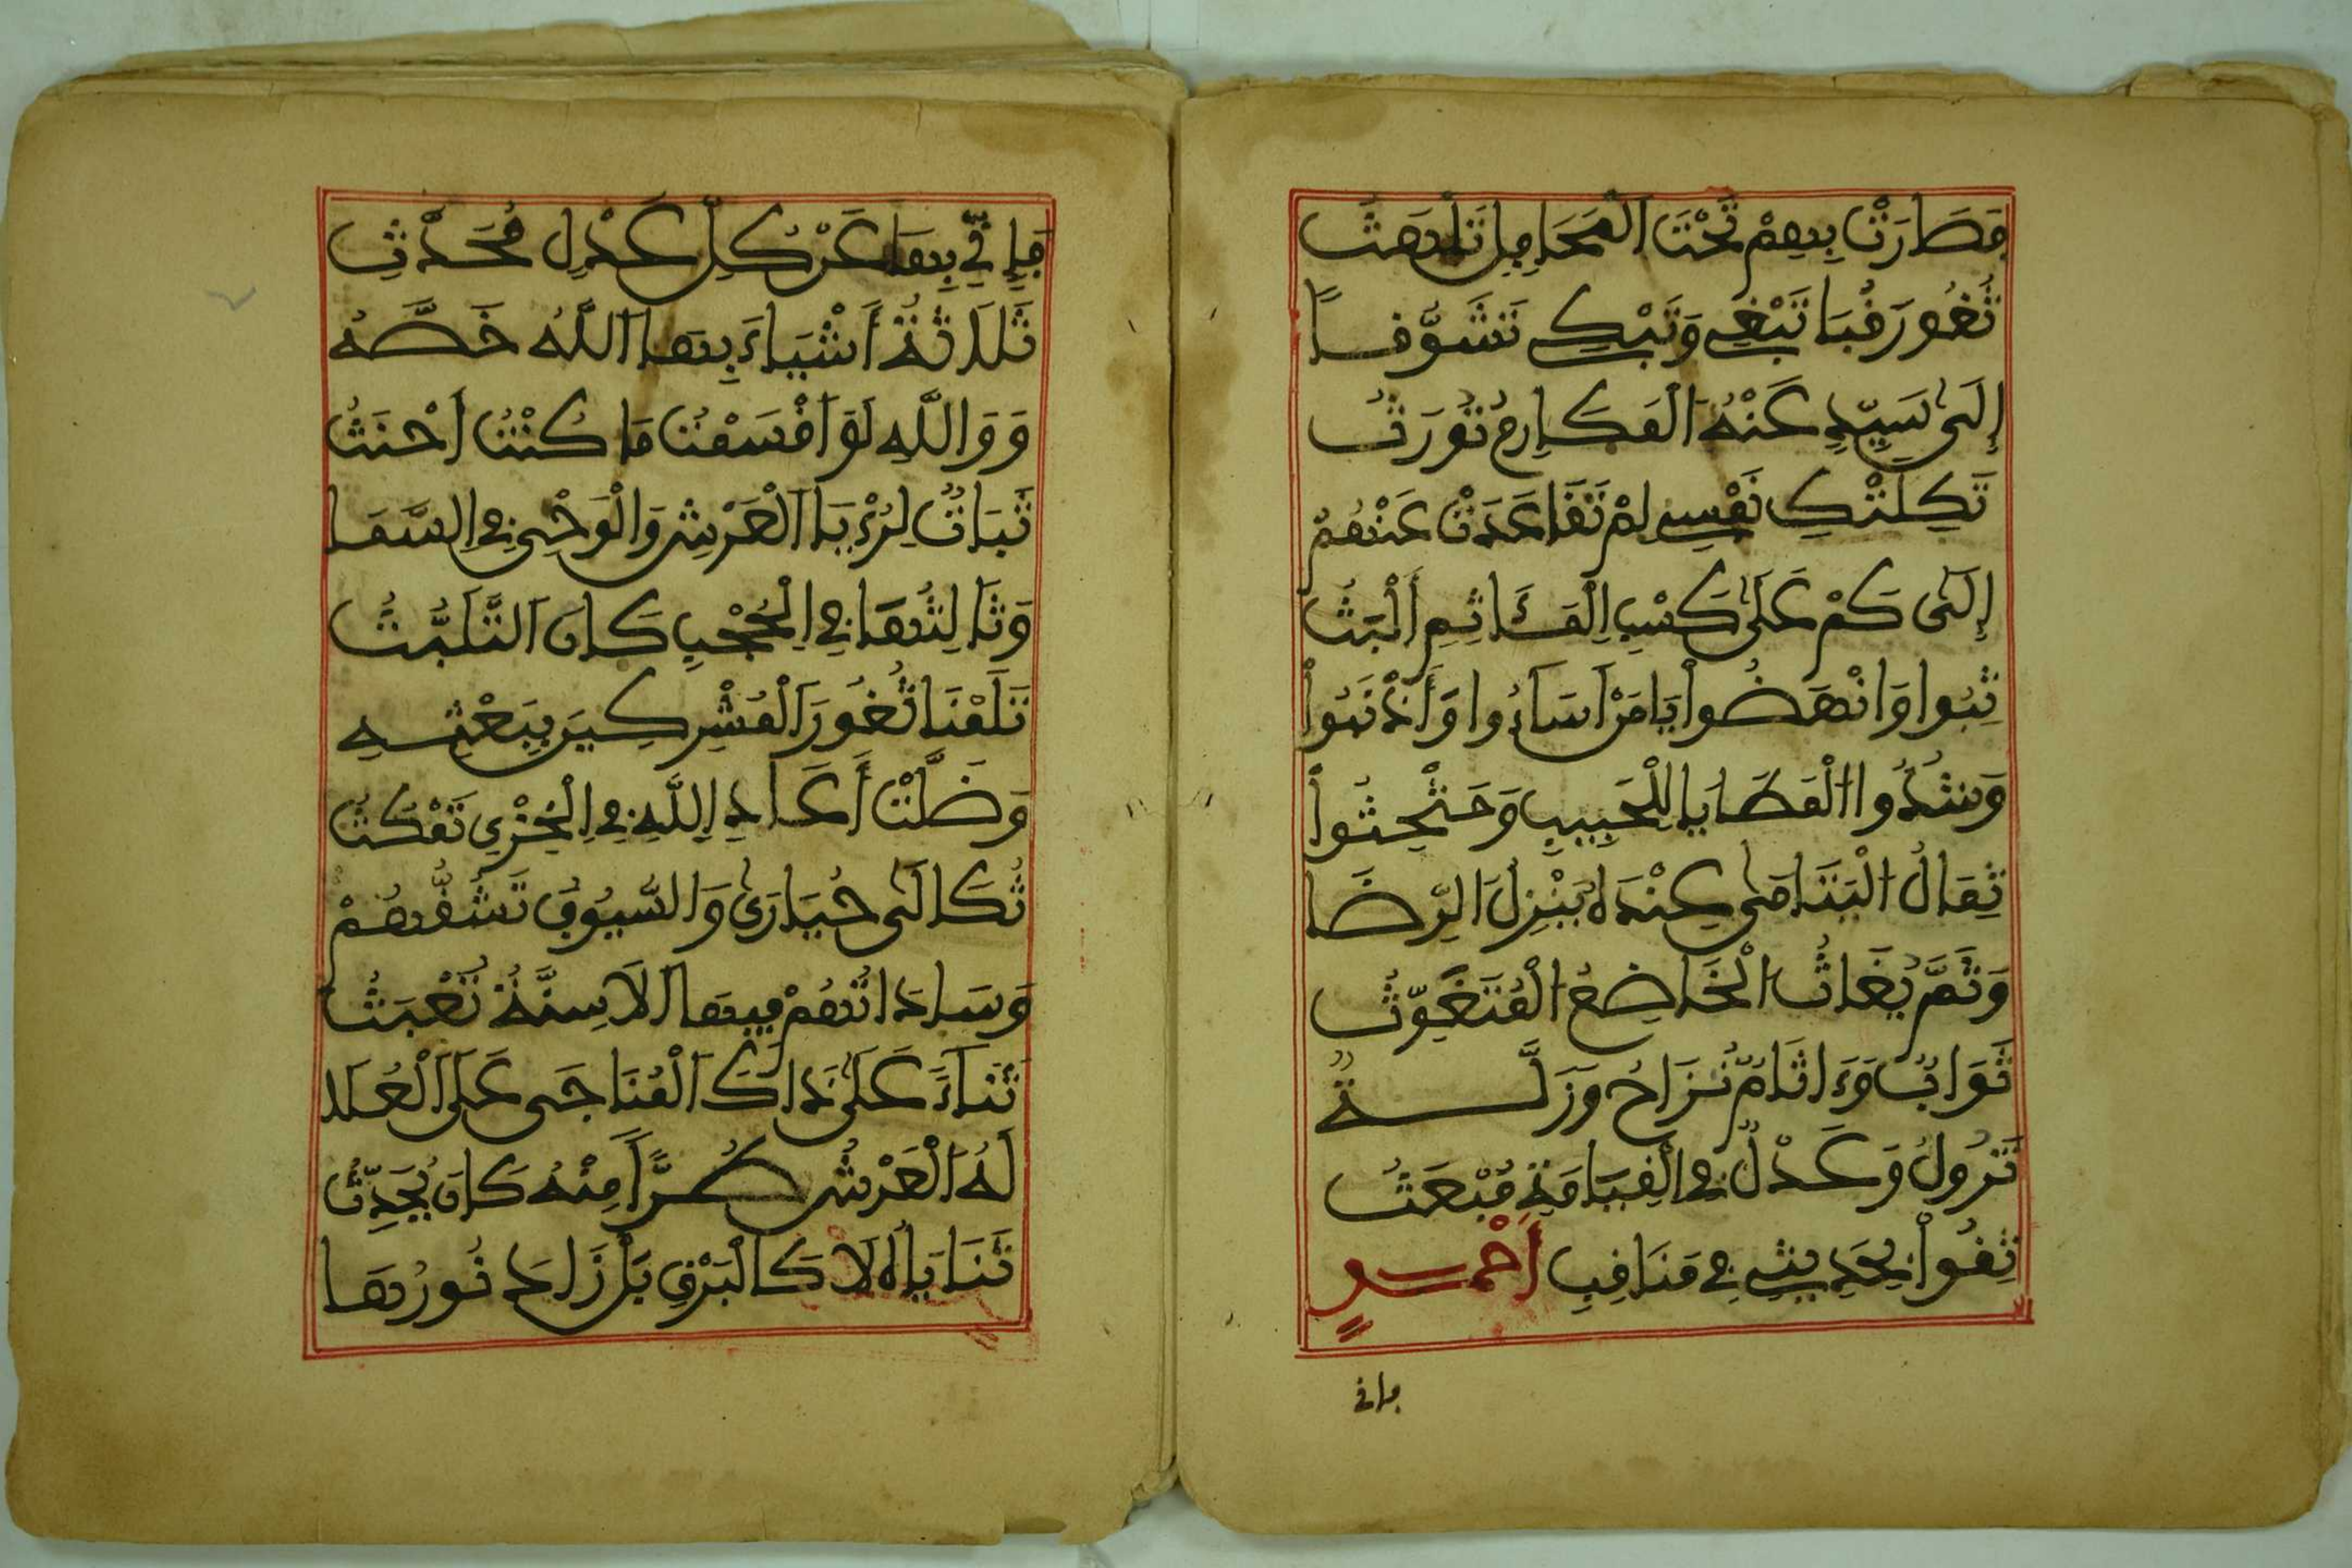 فَطَارَتْ بِهِمْ تَحْتَ الْمَحَامِلِ تَلْهَثُ
ثُغُورَ قُبَا تَبْغِي وَتَبْكِي تَشَوُّفًا
إِلَى سَيِّدٍ عَنْهُ الْمَكَارِمُ تُورَثُ
ثَكِلْتُكِ نَفْسِي لِمْ تَقَاعَدْتْ عَنْهُمُ
إِلَى كَمْ عَلَى كَسْبِ الْمَئَاثِمِ أَلْبَثُ
ثِبُوا وَانْهَضُوا يَا مَنْ أَسَاءُوا وَأَذْنَبُوا
وَشُدُّوا الْمَطَايَا لِلْحَبِيبِ وَحَثْحِثُوا
ثِمَالُ الْيَتَامَى عِنْدَهُ يَنْزِلُ الرِّضَا
وَثَمَّ يُغَاثُ الْخَاضِعُ الْمُتَغَوِّثُ
ثَوَابٌ وَءَاثَامٌ تُزَاحُ وَزَلَّــةٌ
تَزُولُ وَعَدْلٌ فِي الْقِيَامَةِ مُبْعَثُ
ثِقُوا بِحَدِيثِي فِي مَنَاقِبِ أَحْمَــدٍ
فإني
فَإِنِّي بِهَا عَنْ كُلِّ عَدْلٍ مُحَدَّثِ
ثَلَاثَةُ أَشْيَاءَ بِهَا اللَّهُ خَصَّهُ
وَوَاللَّهِ لَوْ أَقْسَمْتُ مَا كُنْتُ أَحْنَثُ
ثَبَاتٌ لِرُءْيَا الْعَرْشِ وَالْوَحْيِ فِي السَّمَا
وَثَالِثُهَا فِي الْحُجْبِ كَانَ التَّلَبُّثُ
ثَلَمْنَا ثُغُورَ الْمُشْرِكِينَ بِبَعْثِــهِ
وَضَلَّتْ أَعَادِ اللَّهِ فِي الْخِزْيِ تَمْكُثُ
ثُكَالَى حُيَارَى وَالسُّيُوفُ تَشُقُّهُمْ
وَسَادَاتُهُمْ فِيهَا الْأَسِنَّةُ تَعْبَثُ
ثَنَاءً عَلَى ذَاكَ الْمُنَاجَى عَلَى الْعُلَا
لَهُ الْعَرْشُ طُرًّا مِنْهُ كَانَ يُحَدِّثُ
ثَنَايَاهُ لَا كَالْبَرْقِ بَلْ زَادَ نُورُهَا